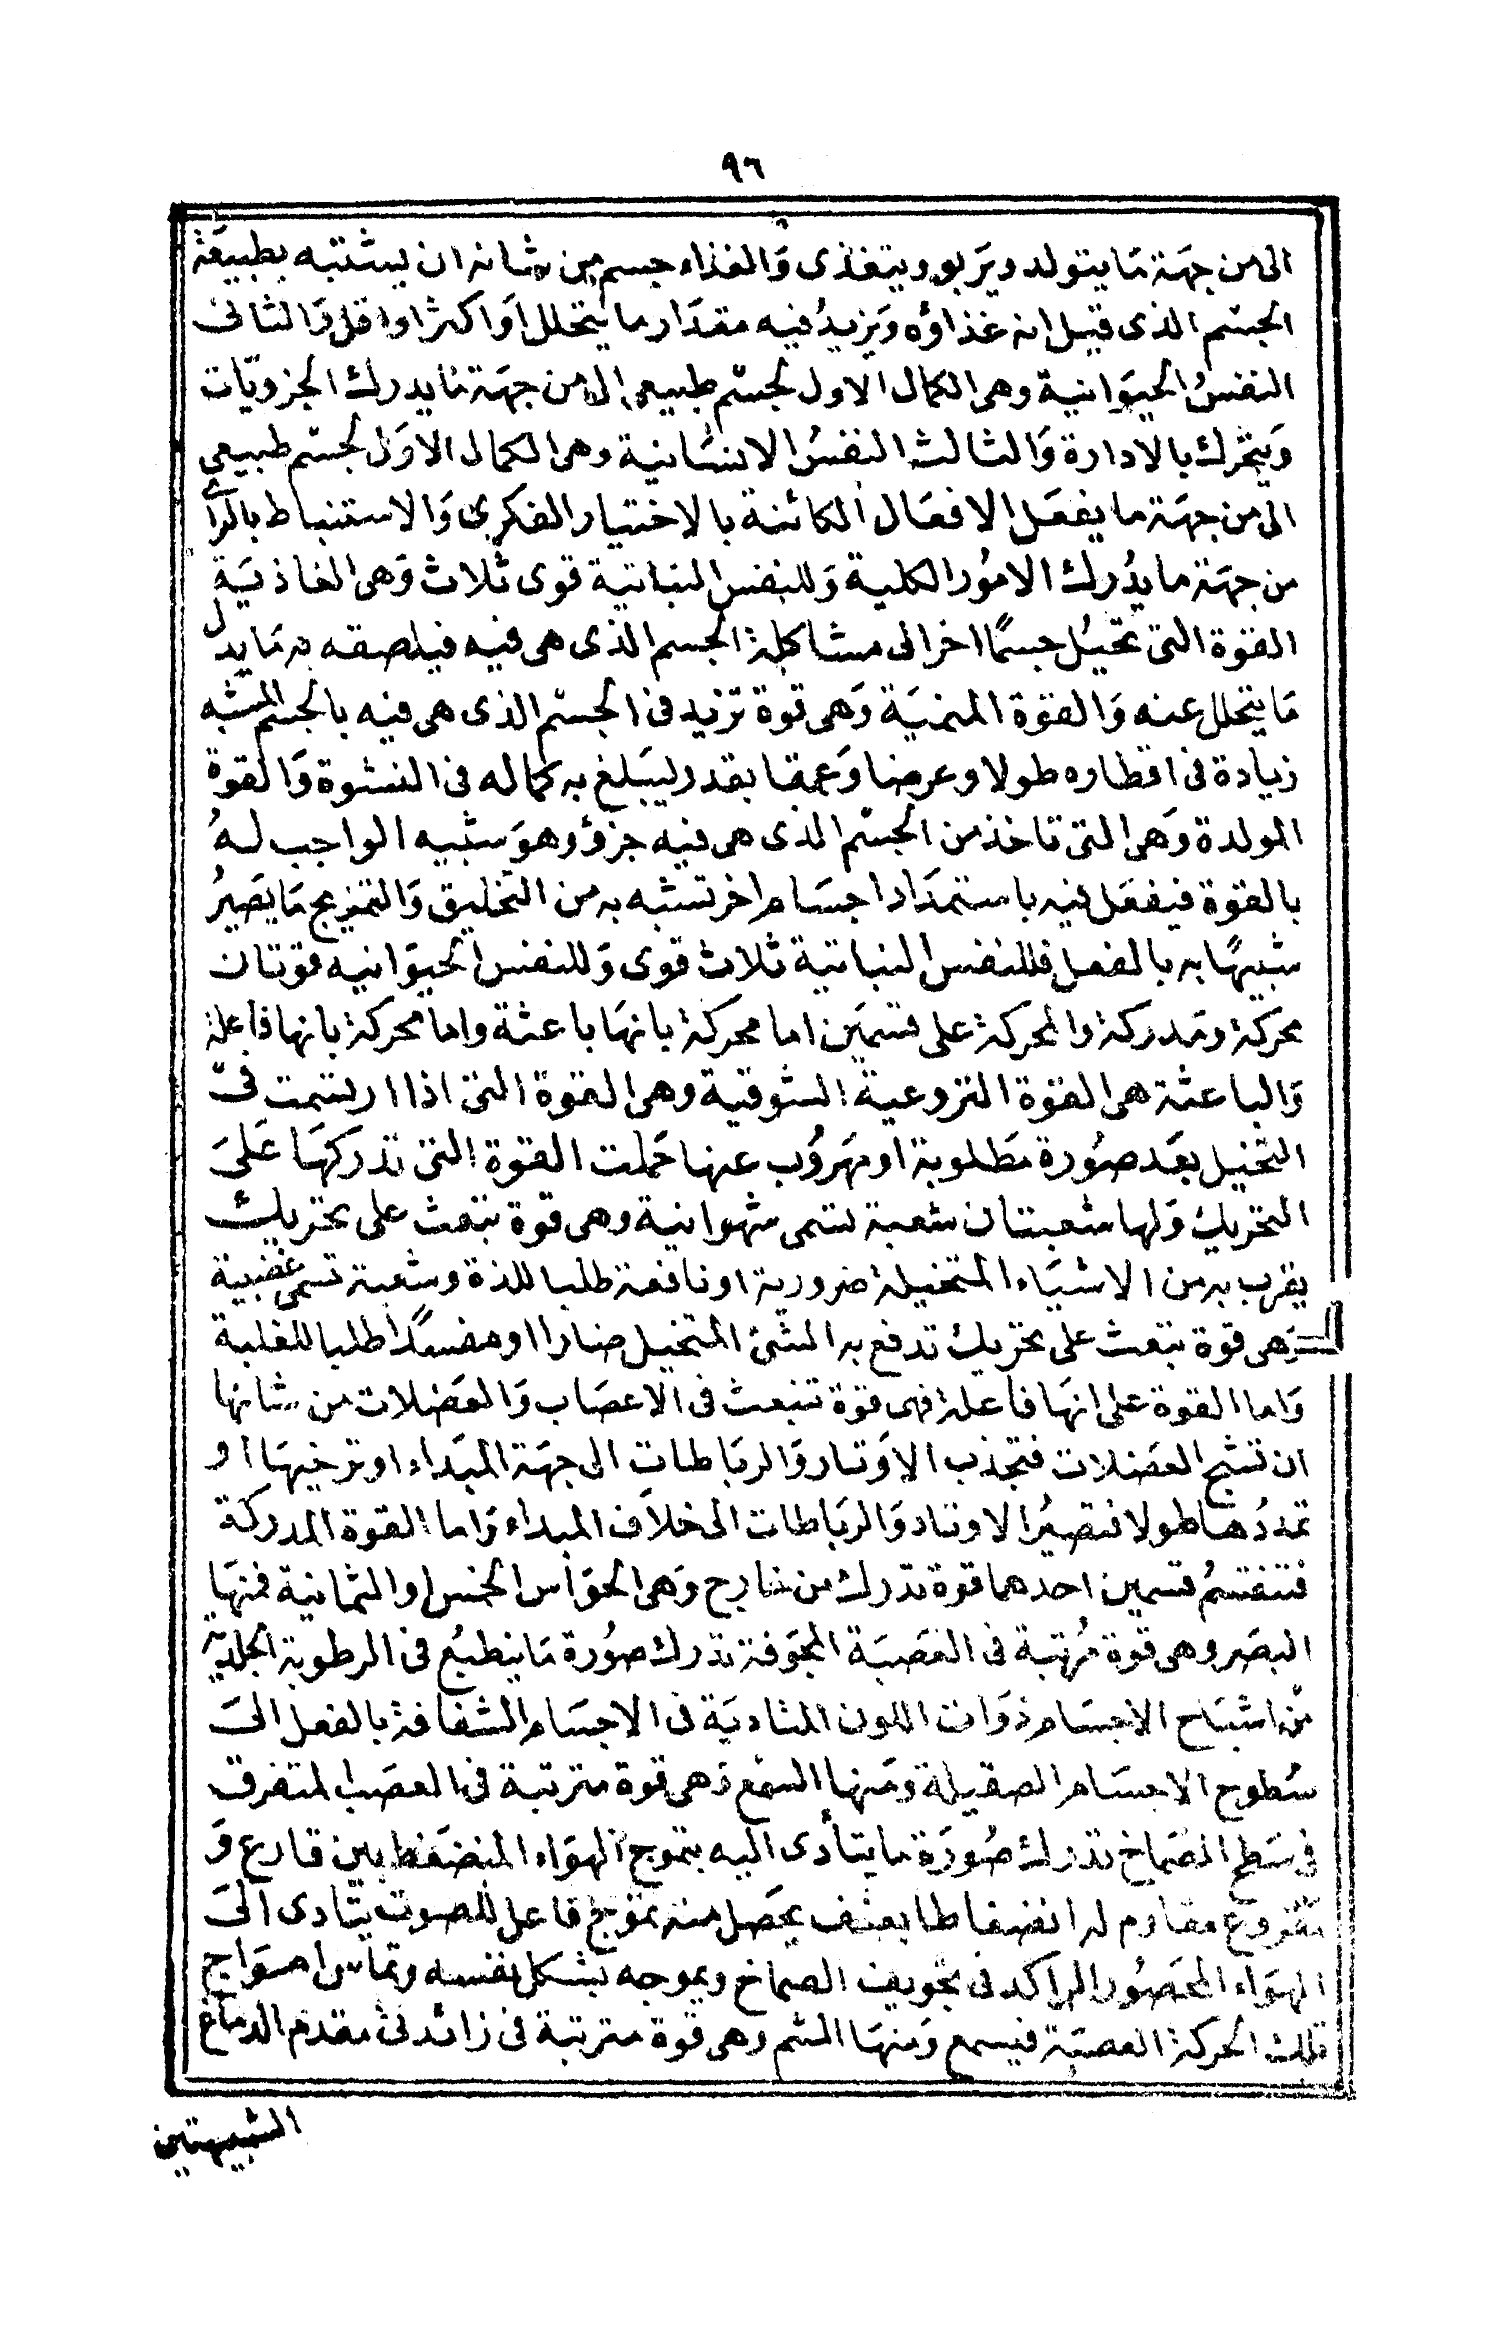 ٩٦
الى من جهة ما يتولد ويربو ويتغذى والغذاء جسم من شانه ان يشتبه بطبيعة
الجسم الذى قيل انه غذاؤه ويزيد فيه مقدار ما يتحلل او اكثر او اقل والثانى
النفس الحيوانية وهى الكمال الاول لجسم طبيعى الى من جهة ما يدرك الجزويات
ويتحرك بالادارة والثالث النفس الانسانية وهى الكمال الاول لجسم طبيعى
الى من جهة ما يفعل الافعال الكائنة بالاختيار الفكرى والاستنباط بالراى
من جهة ما يدرك الامور الكلية وللنفس النباتية قوى ثلاث وهى الغاذية
القوة التى تحيل جسمًا اخر الى مشاكلة الجسم الذى هى فيه فيلصقه به ما يدل
ما يتحلل عنه والقوة المنمية وهى قوة تزيد فى الجسم الذى هى فيه بالجسم المشبه
زيادة فى اقطاره طولا وعرضا وعمقا بقدر ليبلغ به كماله فى النشوة والقوة
المولدة وهى التى تاخذ من الجسم الذى هى فيه جزؤ وهو شبيه الواجب له
بالقوة فيفعل فيه باستمداد اجسام اخر تشبه به من التخليق والتمزيج ما يصير
شبيهًا به بالفعل فللنفس النباتية ثلاث قوى وللنفس الحيوانيه قوتان
محركة ومدركة والمحركة على قسمين اما محركة بانها باعثة واما محركة بانها فاعلة
والباعثة هى القوة النزوعية الشوقية وهى القوة التى اذا ارتسمت فى
التخيل بعد صورة مطلوبة او مهروب عنها حملت القوة التى تدركها على
التحريك ولها شعبتان شعبة تسمى شهوانية وهى قوة تبعث على تحريك
يقرب به من الاشياء المتخيلة ضرورية او نافعة طلبا للذة وشعبة تسمى غضبية
وهى قوة تبعث على تحريك تدفع به الشئ المتخيل ضارا او مفسدًا طلبا للغلبة
واما القوة على انها فاعلة فهى قوة تنبعث فى الاعصاب والعضلات من شانها
ان تشنج العضلات فتجذب الاوتار والرباطات الى جهة المبداء او ترخيها او
تمددها طولا فتصير الاوتاد والرباطات الى خلاف المبداء واما القوة المدركة
فتنقسم قسمين احدهما قوة تدرك من خارج وهى الحواس الخمس او الثمانية فمنها
البصر وهى قوة مرتبة فى العصبة المجوفة تدرك صورة ما ينطبع فى الرطوبة الجلدية
من اشباح الاجسام ذوات اللون المتادية فى الاجسام الشفافة بالفعل الى
سطوح الاجسام الصقيلة ومنها السمع وهى قوة مترتبة فى العصب المتفرق
فى سطح الصماخ تدرك صورة ما يتأدى اليه بتموج الهواء المنضغط بين قارع و
مقروع مقاوم له انضغاطا بعنف يحصل منه تموج فاعل للصوت يتادى الى
الهواء المحصور الراكد فى تجويف الصماخ ويموجه بشكل نفسه وتماس امواج
تلك الحركة العصبة فيسمع ومنها الشم وهى قوة مترتبة فى زائدتى مقدم الدماغ
الشبيهتين